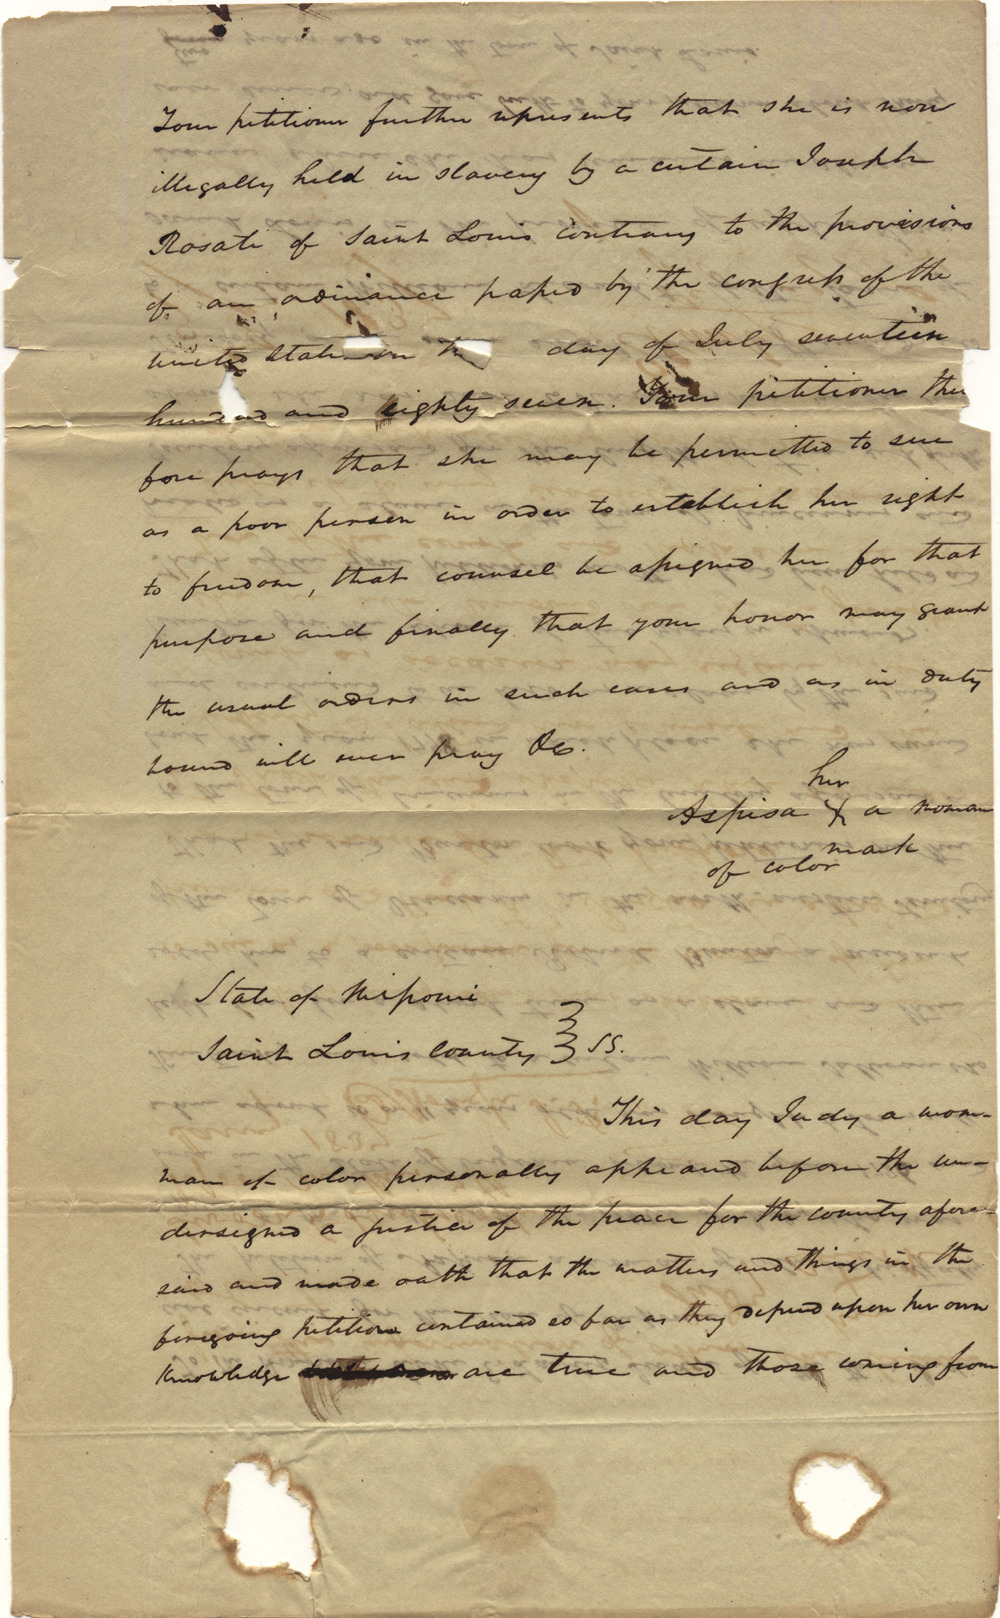 Your petitioner further represents that she is now
illegally held in slavery by a certain Joseph
Rosati of Saint Louis contrary to the provisions
of an ordinance passed by the congress of the
united states on the day of July seventeen
hundred and eighty seven. Your petitioner there
fore prays that she may be permitted to sue
as a poor person in order to establish her right
to freedom, that counsel be assigned her for that
purpose and finally that your honor may grant
the usual orders in such cases and as in duty
bound will ever pray &c.
her
Aspisa X a woman
mark
of color
State of Missouri
Saint Louis County } SS.
This day Judy a wom-
man of color personally appeared before the un-
dersigned a justice of the peace for the county afore-
said and made oath that the matters and things in the
foregoing petition contained so far as they depend upon her own
knowledge are true and those coming from